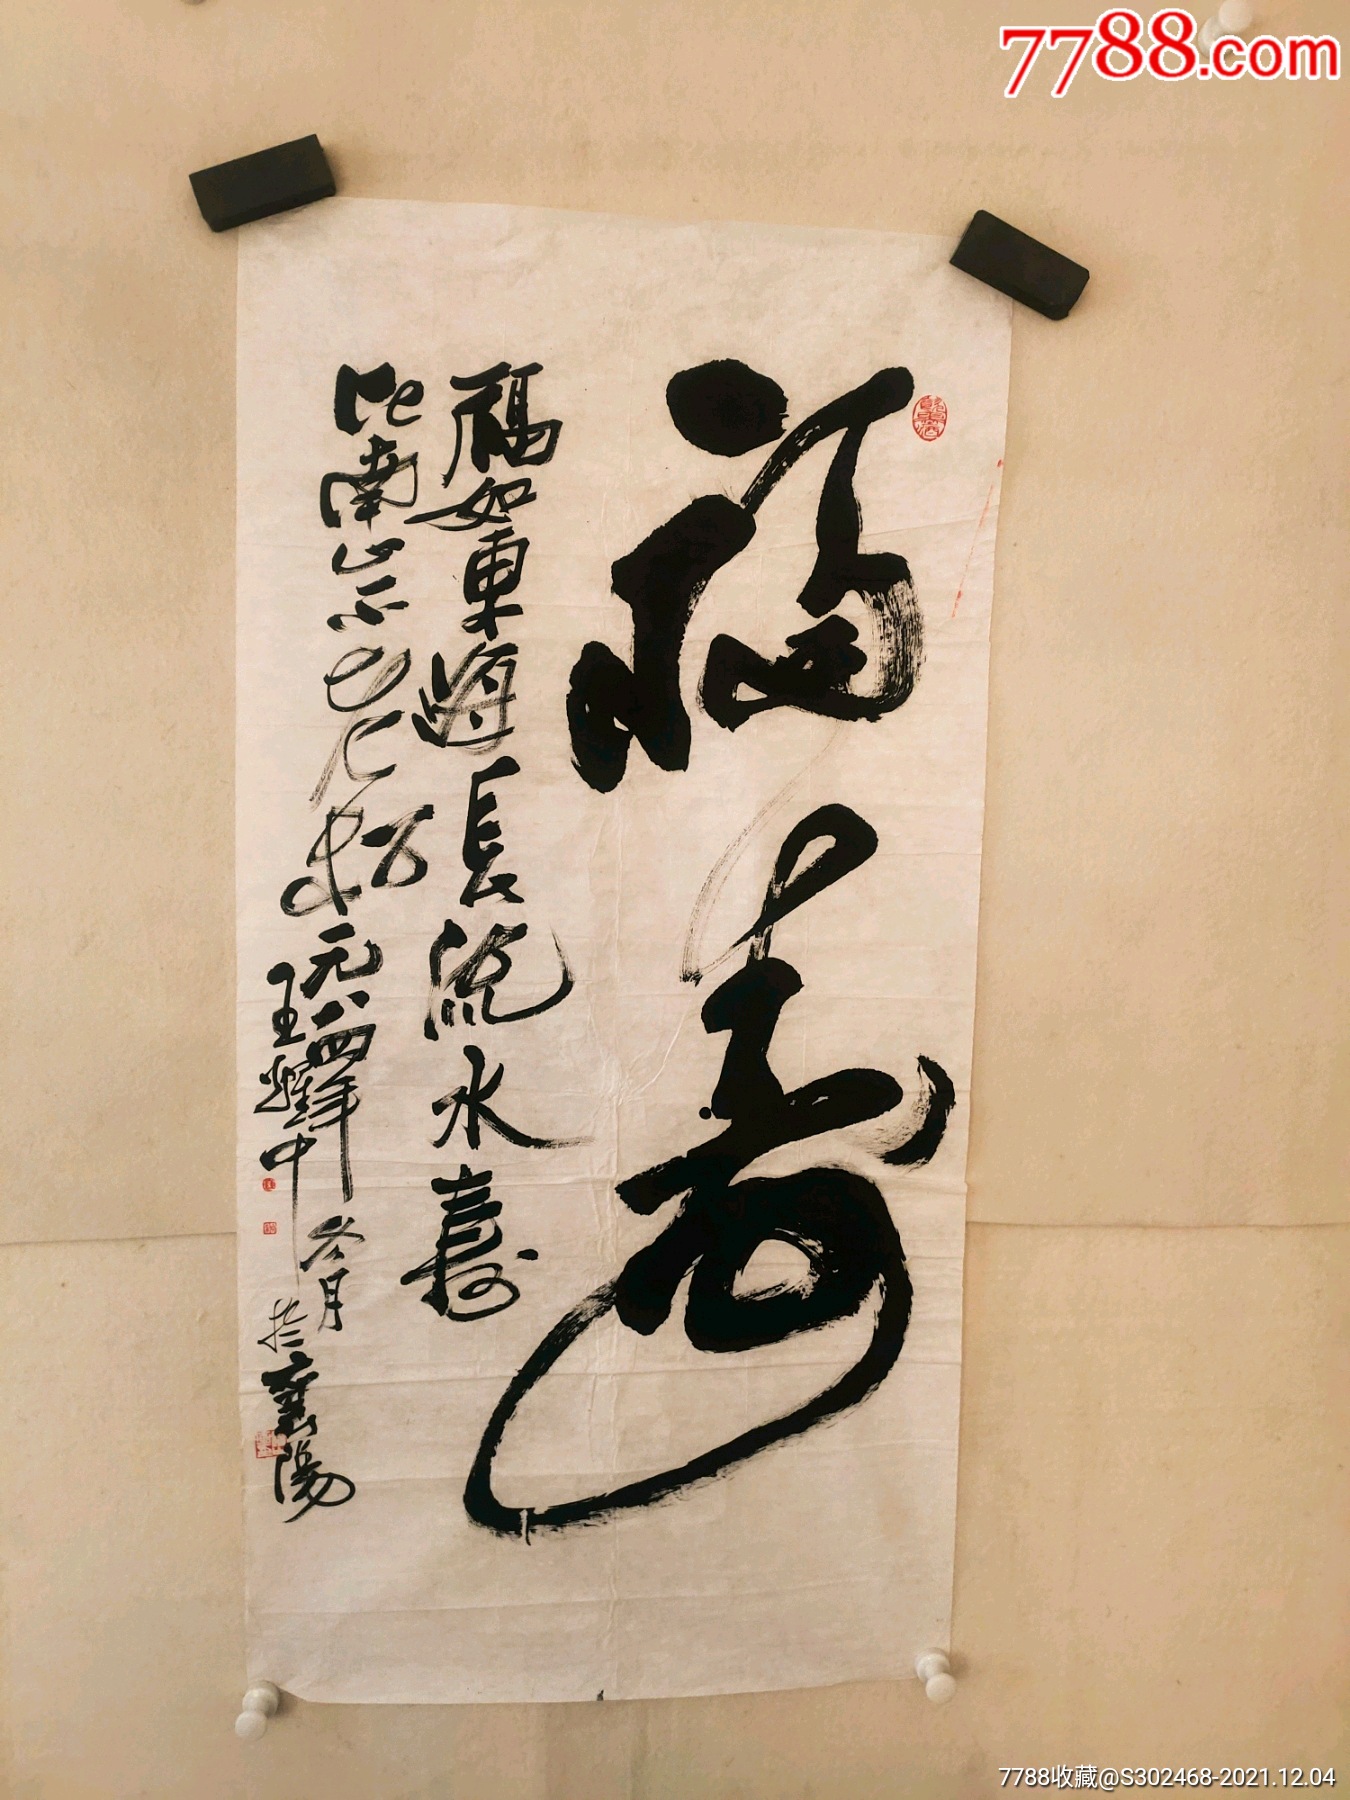 7788.com
福寿
福如東海長流水壽
比南山不老松
元八四年冬月
王耀中
於襄陽
7788收藏@S302468-2021.12.04